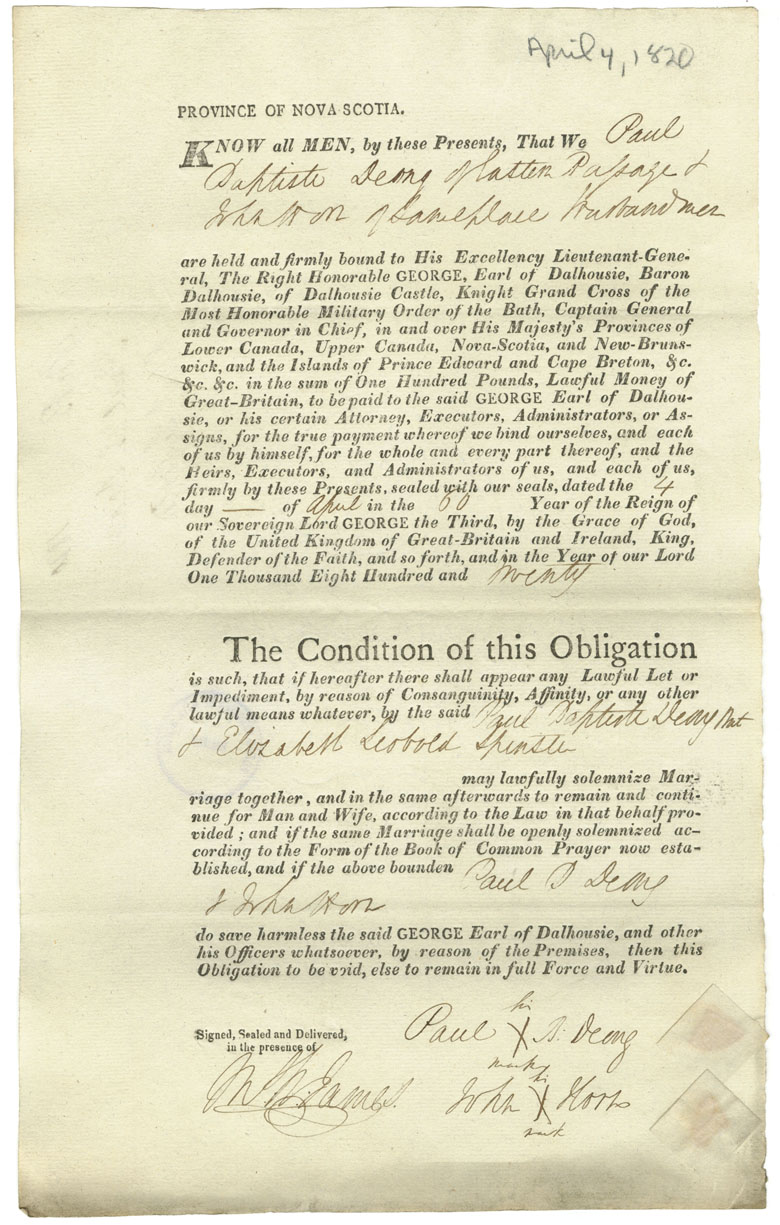 April 4, 1820
PROVINCE OF NOVA SCOTIA.
KNOW all MEN, by these Presents, That We Paul
Baptiste Deong of Eastern Passage &
John Horn of same place Husbandmen
are held and firmly bound to His Excellency Lieutenant-Gene-
ral, The Right Honorable GEORGE, Earl of Dalhousie, Baron
Dalhousie, of Dalhousie Castle, Knight Grand Cross of the
Most Honorable Military Order of the Bath, Captain General
and Governor in Chief, in and over His Majesty's Provinces of
Lower Canada, Upper Canada, Nova-Scotia, and New-Bruns-
wick, and the Islands of Prince Edward and Cape Breton, &c.
&c. &c. in the sum of One Hundred Pounds, Lawful Money of
Great-Britain, to be paid to the said GEORGE Earl of Dalhou-
sie, or his certain Attorney, Executors, Administrators, or As-
signs, for the true payment whereof we bind ourselves, and each
of us by himself, for the whole and every part thereof, and the
Heirs, Executors, and Administrators of us, and each of us,
firmly by these Presents, sealed with our seals, dated the 4
day — of April in the 60 Year of the Reign of
our Sovereign Lord GEORGE the Third, by the Grace of God,
of the United Kingdom of Great-Britain and Ireland, King,
Defender of the Faith, and so forth, and in the Year of our Lord
One Thousand Eight Hundred and twenty
The Condition of this Obligation
is such, that if hereafter there shall appear any Lawful Let or
Impediment, by reason of Consanguinity, Affinity, or any other
lawful means whatever, by the said Paul Baptiste Deong
& Elizabeth Leobold Spinster
may lawfully solemnize Mar-
riage together, and in the same afterwards to remain and conti-
nue for Man and Wife, according to the Law in that behalf pro-
vided; and if the same Marriage shall be openly solemnized ac-
cording to the Form of the Book of Common Prayer now esta-
blished, and if the above bounden Paul B Deong
& John Horn
do save harmless the said GEORGE Earl of Dalhousie, and other
his Officers whatsoever, by reason of the Premises, then this
Obligation to be void, else to remain in full Force and Virtue.
Signed, Sealed and Delivered,
in the presence of
his
Paul X B. Deong
mark
his
John X Horn
mark